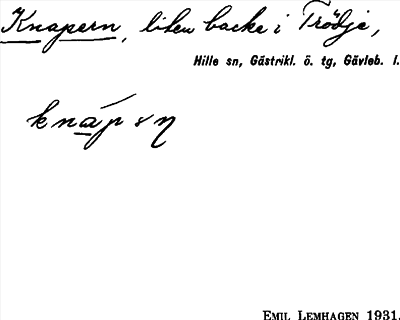 Knapern, liten backe i Trödje,
Hille sn, Gästrikl. ö. tg, Gävleb. l.
knápən
EMIL LEMHAGEN 1931.